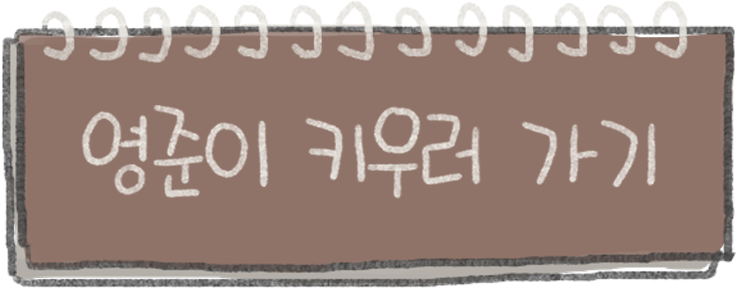 영준이 키우러 가기